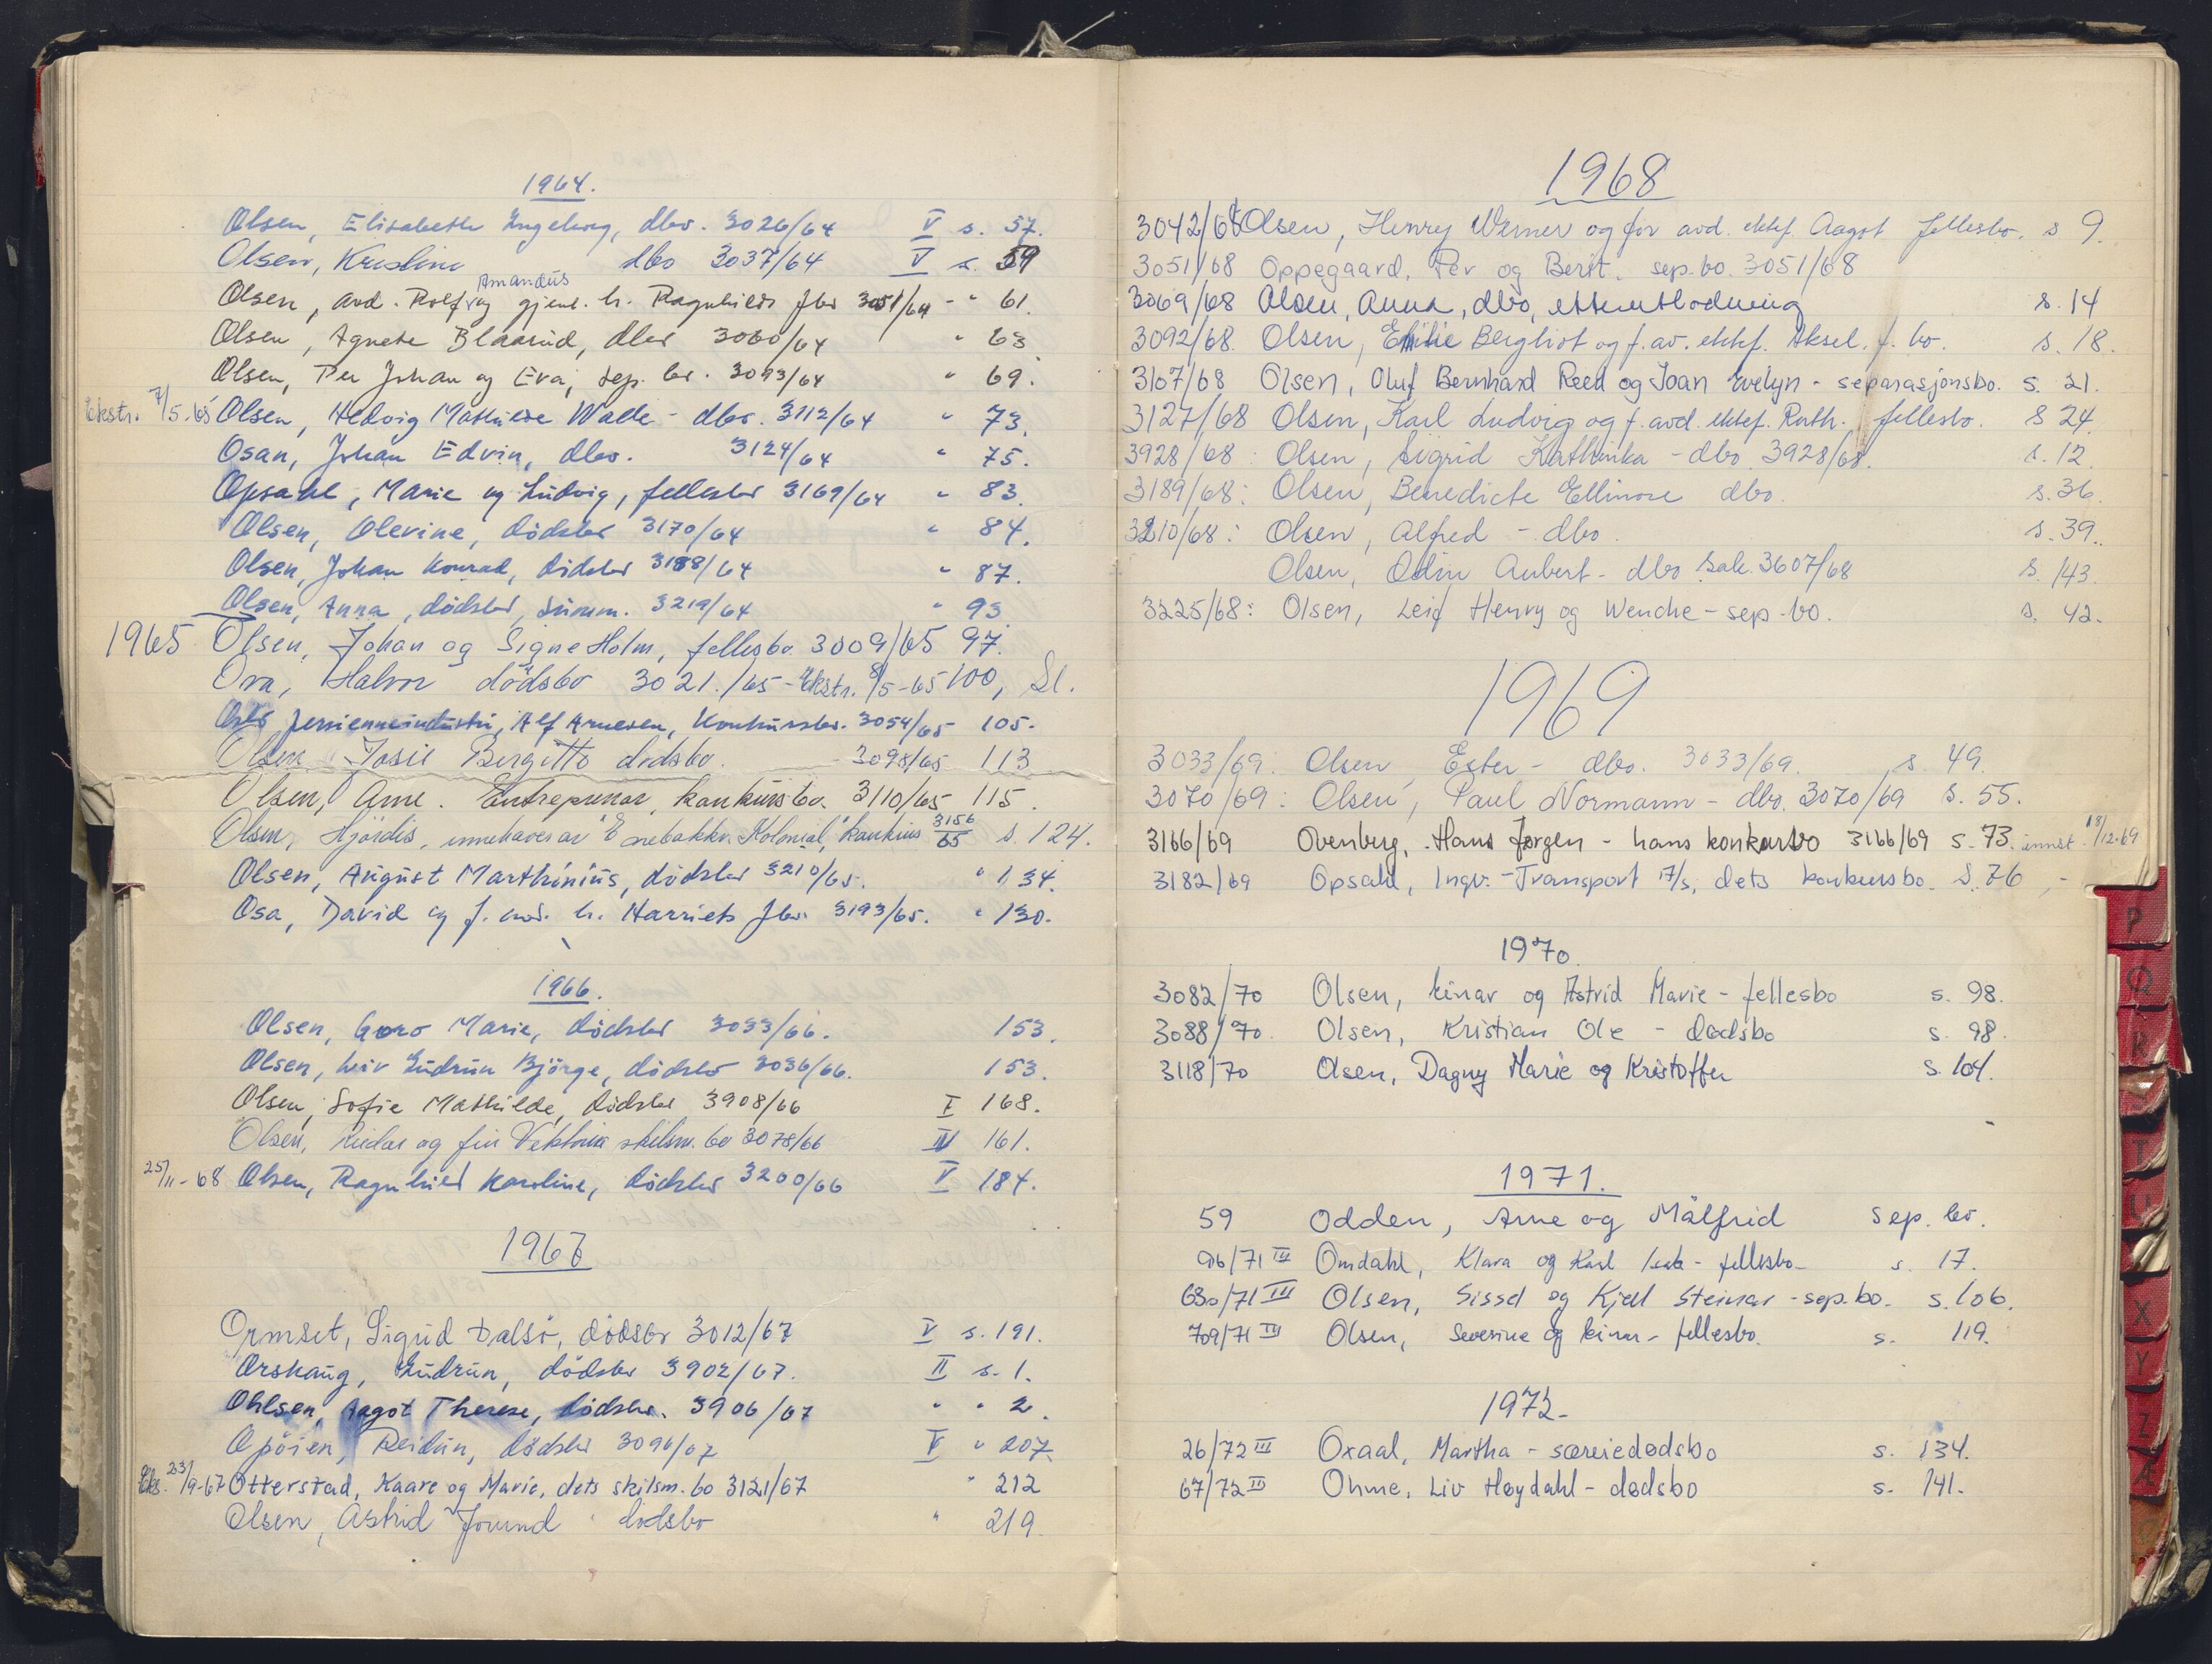 1964.
Olsen, Elisabeth Ingeborg, dbo. 3026/64 V s. 57.
Olsen, Kristine dbo 3037/64 V s. 59
Amandus
Olsen, avd. Rolf og gjenl. h. Ragnhilds fbo 3051/64 - " 61.
Olsen, Agnete Blaarud, dbo 3060/64 " 63.
Olsen, Per Johan og Eva, sep. bo. 3093/64 " 69.
Ekstr. 7/5-65 Olsen, Hedvig Mathilde Walle - dbo. 3112/64 " 73.
Osan, Johan Edvin, dbo. 3124/64 " 75.
Opsahl, Marie og Ludvig, fellesbo 3169/64 " 83.
Olsen, Olevine, dödsbo 3170/64 " 84.
Olsen, Johan Konrad, dödsbo 3188/64 " 87.
Olsen, Anna, dödsbo, summ. 3219/64 " 93.
1965 Olsen, Johan og Signe Holm, fellesbo 3009/65 97.
Ora, Halvor dödsbo 3021./65 - Ekstr. 8/5-65 100,
Oslo persienneindustri, Alf Arnesen, Konkursbo. 3054/65 105.
Olsen, Josie Bergitte dödsbo. 3098/65 113
Olsen, Arne. Entreprenør, konkursbo. 3110/65 115.
Olsen, Hjördis, innehaver av "Enebakkv. Kolonial," konkurs 3156/65 s. 124.
Olsen, August Marthinius, dödsbo 3210/65. " 134.
Osa, David og f. avd. h. Harriets fbo. 3193/65. " 130.
1966.
Olsen, Goro Marie, dödsbo 3033/66. 153.
Olsen, Liv Gudrun Björge, dödsbo 3036/66. 153.
Olsen, Sofie Mathilde, dödsbo 3908/66 I 168.
Olsen, Reidar og fru Viktoria skilsm. bo 3078/66 IV 161.
25/11-68 Olsen, Ragnhild Karoline, dödsbo 3200/66 V 184.
1967
Ormset, Sigrid Dalsö, dödsbo 3012/67 V s. 191.
Orskaug, Gudrun, dödsbo 3902/67. II s. 1.
Ohlsen, Aagot Therese, dödsbo. 3906/67 " " 2.
Opöien, Reidun, dödsbo 3096/67 V " 207.
Eks. 23/9-67 Otterstad, Kaare og Marie, dets skilsm. bo 3121/67 " 212
Olsen, Astrid Jorund dödsbo " 219
1968
3042/68 Olsen, Henry Werner og for avd. ektef. Aagot fellesbo. s 9.
3051/68 Oppegaard, Per og Berit. sep. bo. 3051/68
3069/68 Olsen, Anna, dbo, s. 14
3092/68. Olsen, Emilie Bergliot og f. av. ektef. Aksel. f. bo. s. 18.
3107/68 Olsen, Oluf Bernhard Reed og Joan Evelyn - separasjonsbo. s. 21.
3127/68 Olsen, Karl Ludvig og f. avd. ektef. Ruth. fellesbo. s 24
3928/68: Olsen, Sigrid Kathinka - dbo 3928/68. s. 12.
3189/68: Olsen, Benedicte Ellinore dbo. s. 36.
3210/68: Olsen, Alfred - dbo. s. 39.
Olsen, Odin Aubert - dbo sak. 3607/68 s. 143.
3225/68: Olsen, Leif Henry og Wenche - sep - bo. s. 42.
1969
3033/69: Olsen, Ester - dbo. 3033/69. s. 49.
3070/69: Olsen, Paul Normann - dbo. 3070/69 s. 55.
3166/69 Ovenberg, Hans Jørgen - hans konkursbo 3166/69 s. 73. innst. 18/12-69
3182/69 Opsahl, Ingv. - Transport A/s, dets konkursbo. s. 76,-
1970.
3082/70 Olsen, Einar og Astrid Marie - fellesbo s. 98.
3088/70. Olsen, Kristian Ole - dødsbo s. 98.
3118/70 Olsen, Dagny Marie og Kristoffer s. 104.
1971.
59 Odden, Arne og Målfrid Sep. bo.
96/71 III Omdahl, Klara og Karl - fellesbo - s. 17.
630/71 III Olsen, Sissel og Kjell Steinar - sep. bo. s. 106.
709/71 III Olsen, Severine og Einar - fellesbo. s. 119.
1972-
26/72 III Oxaal, Martha - særeiedødsbo s. 134.
67/72 III Ohme, Liv Høydahl - dødsbo s. 141.
P
Q
R
T
U
X
Y
Z
Æ